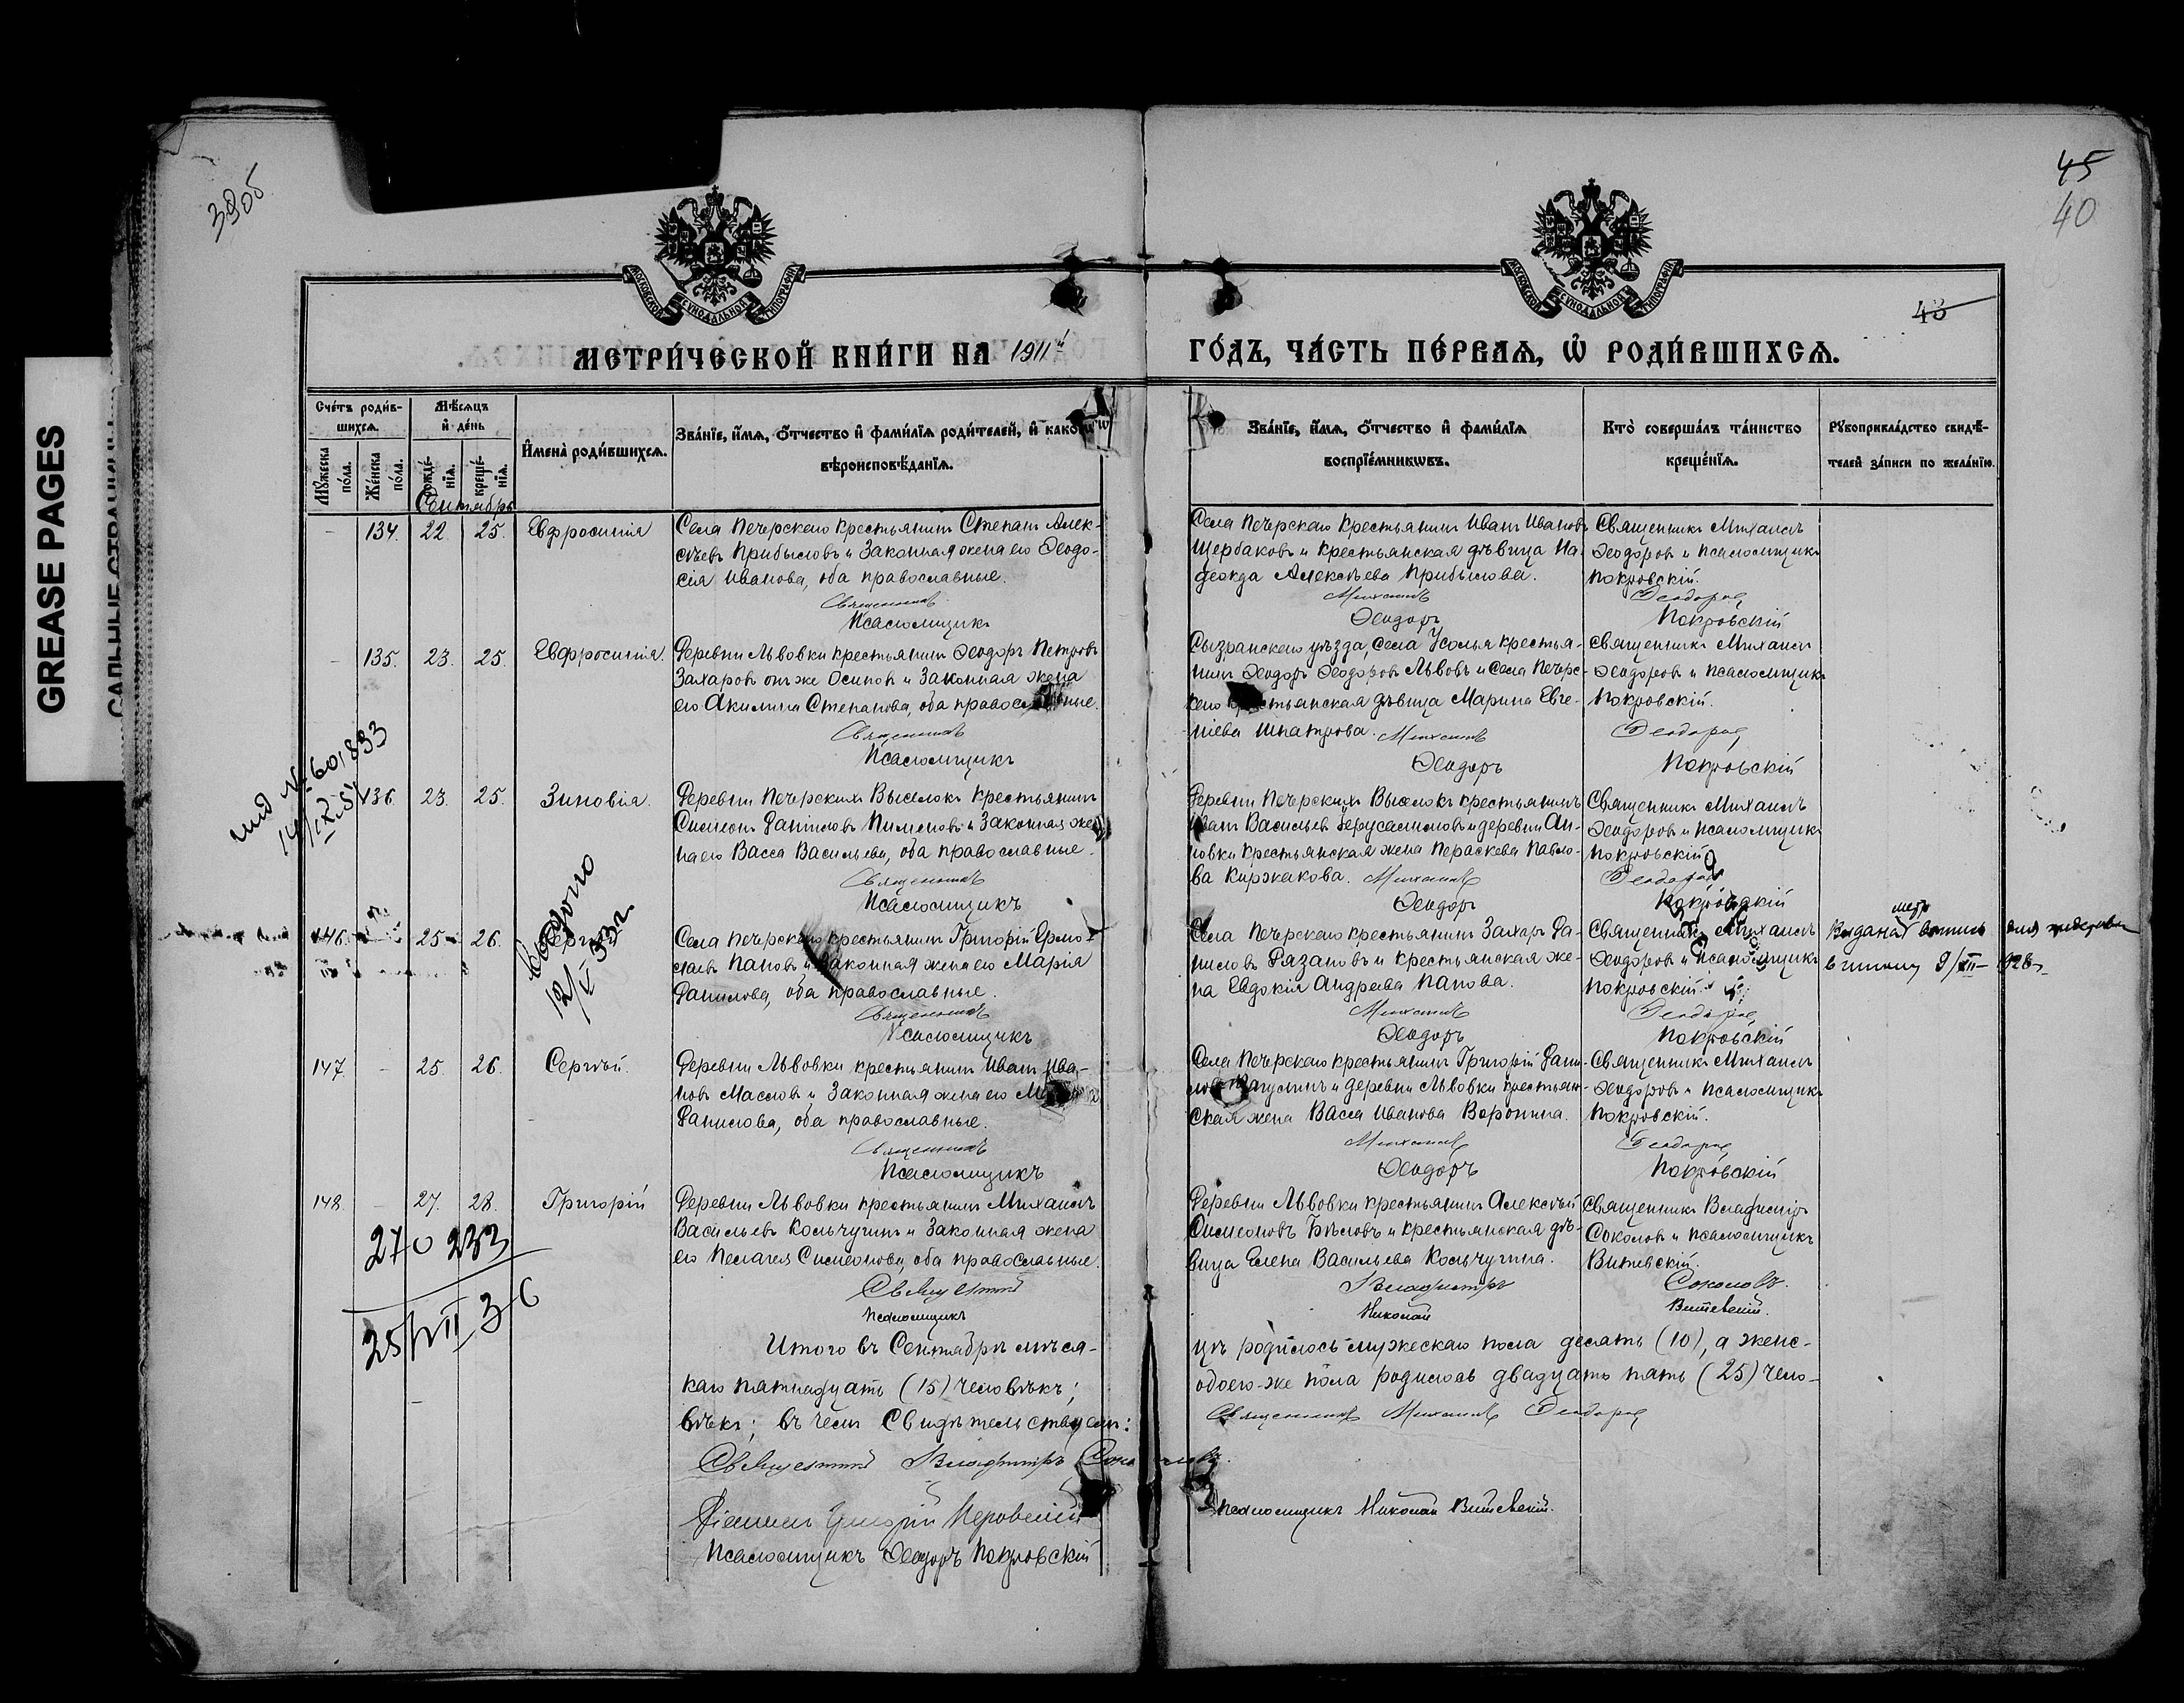 GREASE PAGES
39об
45
40
43
МОСКОВСКОЙ СѴНОДАЛЬНОЙ ТИПОГРАФІИ
МОСКОВСКОЙ СѴНОДАЛЬНОЙ ТИПОГРАФІИ
МЕТРИ́ЧЕСКОЙ КНИ́ГИ НА 1911й
ГО́ДЪ, ЧА́СТЬ ПЕ́РВАѦ, Ѡ҆ РОДИ́ВШИХСѦ.
Сче́тъ роди́в-
шихсѧ.
Мꙋ́жеска
по́ла.
Же́нска
по́ла.
Мѣ́сѧцъ
и҆ де́нь
рожде́-
нїѧ.
креще́-
нїѧ.
И҆мена̀ роди́вшихсѧ.
Зва́нїе, и҆́мѧ, ѻ҆́тчество и҆ фами́лїѧ роди́телей, и҆ како́гѡ
вѣроисповѣ́данїѧ.
Зва́нїе, и҆́мѧ, ѻ҆́тчество и҆ фами́лїѧ
воспрїе́мникѡвъ.
Кто̀ соверша́лъ та́инство
креще́нїѧ.
Рꙋкоприкла́дство свидѣ́-
телей за́писи по жела́нїю.
Сентябрь
– 134. 22. 25. Евфросинія
Села Печерскаго крестьянинъ Степанъ Алек-
сѣевъ Прибыловъ и законная жена его Ѳеодо-
сія Иванова, оба православные.
Священникъ
Псаломщикъ
Села Печерскаго крестьянинъ Иванъ Ивановъ
Щербаковъ и крестьянская дѣвица На-
дежда Алексѣева Прибылова.
Михаилъ
Ѳеодоръ
Священникъ Михаилъ
Ѳеодоровъ и псаломщикъ
Покровскій.
Ѳеодоровъ
Покровскій
– 135. 23. 25. Евфросинія.
Деревни Львовки крестьянинъ Ѳеодоръ Петровъ
Захаровъ онъ же Осиповъ и законная жена
его Акилина Степанова, оба православные.
Священникъ
Псаломщикъ
Сызранскаго уѣзда, села Усолья крестья-
нинъ Ѳеодоръ Ѳеодоровъ Львовъ и села Печерс-
каго крестьянская дѣвица Марина Евге-
ніева Шпатрова. Михаилъ
Ѳеодоръ
Священникъ Михаилъ
Ѳеодоровъ и псаломщикъ
Покровскій.
Ѳеодоровъ
Покровскій
№ 60,833
136. 23. 25. Зиновія.
Деревни Печерскихъ Выселокъ крестьянинъ
Симеонъ Даниловъ Пименовъ и законная же-
на его Васса Васильева, оба православные.
Священникъ
Псаломщикъ
Деревни Печерскихъ Выселокъ крестьянинъ
Иванъ Васильевъ Іерусалимовъ и деревни Ан-
новки крестьянская жена Параскева Павло-
ва Киржакова. Михаилъ
Ѳеодоръ
Священникъ Михаилъ
Ѳеодоровъ и псаломщикъ
Покровскій
Ѳеодоровъ
Покровскій
12/V 33г.
146. 25. 26. Сергѣй
Села Печерскаго крестьянинъ Григорій Ермо-
лаевъ Пановъ и законная жена его Марія
Данилова, оба православные.
Священникъ
Псаломщикъ
Села Печерскаго крестьянинъ Захаръ Да-
ниловъ Рязановъ и крестьянская же-
на Евдокія Андреева Панова.
Михаилъ
Ѳеодоръ
Священникъ Михаилъ
Ѳеодоровъ и псаломщикъ
Покровскій.
Ѳеодоровъ
Покровскій
метр
Выдана
9/XII – 1928г.
147. – 25. 26. Сергѣй.
Деревни Львовки крестьянинъ Иванъ Ива-
новъ Масловъ и законная жена его
Данилова, оба православные.
Священникъ
Псаломщикъ
Села Печерскаго крестьянинъ Григорій Дани-
ловъ и деревни Львовки крестьян-
ская жена Васса Иванова Воронина.
Михаилъ
Ѳеодоръ
Священникъ Михаилъ
Ѳеодоровъ и псаломщикъ
Покровскій.
Ѳеодоровъ
Покровскій
148. – 27. 28. Григорій
Деревни Львовки крестьянинъ Михаилъ
Васильевъ Кольчугинъ и законная жена
его Пелагея Симеонова, оба православные.
Священникъ
Псаломщикъ
Деревни Львовки крестьянинъ Алексѣй
Симеоновъ Бѣловъ и крестьянская дѣ-
вица Елена Васильева Кольчугина.
Владиміръ
Николай
Священникъ Владиміръ
Соколовъ и псаломщикъ
Витевскій.
Соколовъ.
Витевскій.
270 233
25/VII 36
Итого въ Сентябрѣ мѣся-
цѣ родилось мужескаго пола десять (10), а женс-
каго пятнадцать (15) человѣкъ;
обоего-же пола родилось двадцать пять (25) чело-
вѣкъ; въ чемъ свидѣтельствуемъ:
Священникъ Михаилъ Ѳеодоровъ
Священникъ Владиміръ Соколовъ.
Псаломщикъ Николай Витевскій.
Псаломщикъ Ѳеодоръ Покровскій